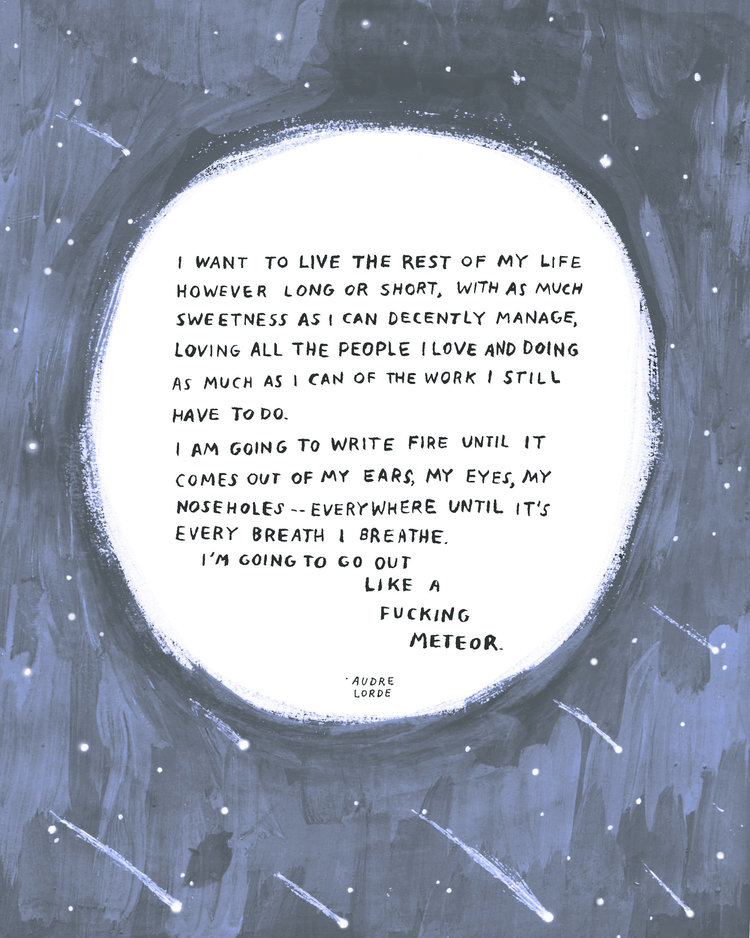 I WANT TO LIVE THE REST OF MY LIFE
HOWEVER LONG OR SHORT, WITH AS MUCH
SWEETNESS AS I CAN DECENTLY MANAGE,
LOVING ALL THE PEOPLE I LOVE AND DOING
AS MUCH AS I CAN OF THE WORK I STILL
HAVE TO DO.
I AM GOING TO WRITE FIRE UNTIL IT
COMES OUT OF MY EARS, MY EYES, MY
NOSEHOLES -- EVERYWHERE UNTIL IT'S
EVERY BREATH I BREATHE.
I'M GOING TO GO OUT
LIKE A
FUCKING
METEOR.
-AUDRE
LORDE